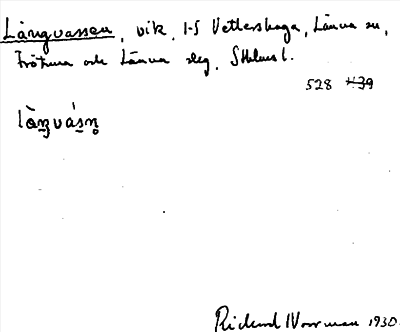 Långvassen, vik, 1-5 Vettershaga, Länna sn,
Frötuna och Länna slg, Sthlms l.
528 4:39
làŋvásn̥
Rickard Norrman 1930